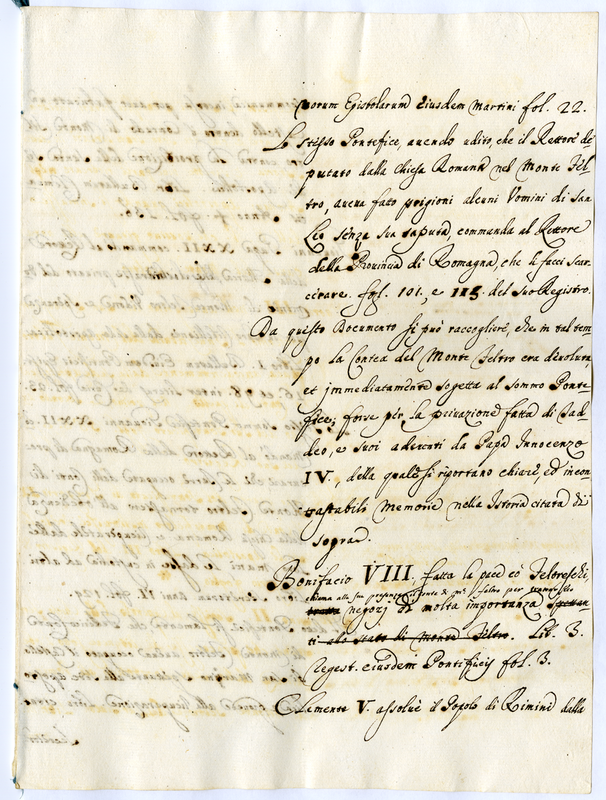 quorum Epistolarum Eiusdem Martini fol. 22.
Lo stesso Pontefice, auendo udito, che il Rettore de
putato dalla Chiesa Romana nel Monte Fel-
tro, aueua fatto prigioni alcuni Vomini di San
Leo senza sua saputa, commanda al Rettore
della Prouincia di Romagna, che li facci scar-
cirare. fol. 101. e 115. del suo Registro.
Da questo Documento si può raccogliere, che in tal tem
po la Contea del Monte Feltro era deuoluta,
et immediatamente sogetta al sommo Ponte-
fice; forse per la priuazione fatta di Tad-
deo, e suoi aderenti da Papa Innocenzo
IV. della quale si riportano chiare, ed incon-
trastabili memorie nella Istoria citata di
sopra.
Bonifacio VIII. fatta la pace cò Feloreschi,
chiama alla sua presenza il Conte di M. Feltro per
negozj di molta importanza spettan-
ti allo stato di Monte Feltro. Lib. 3.
Regest. eiusdem Pontificis fol. 3.
Clemente V. assolue il Popolo di Rimino dalla